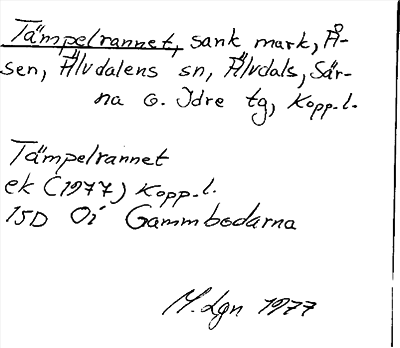 Tämpelrannet, sank mark, Å-
sen, Älvdalens sn, Älvdals, Sär-
na o. Idre tg, Kopp.l.
Tämpelrannet
ek (1977) Kopp.l.
15D 0i Gammbodarna
M.Lgn 1977